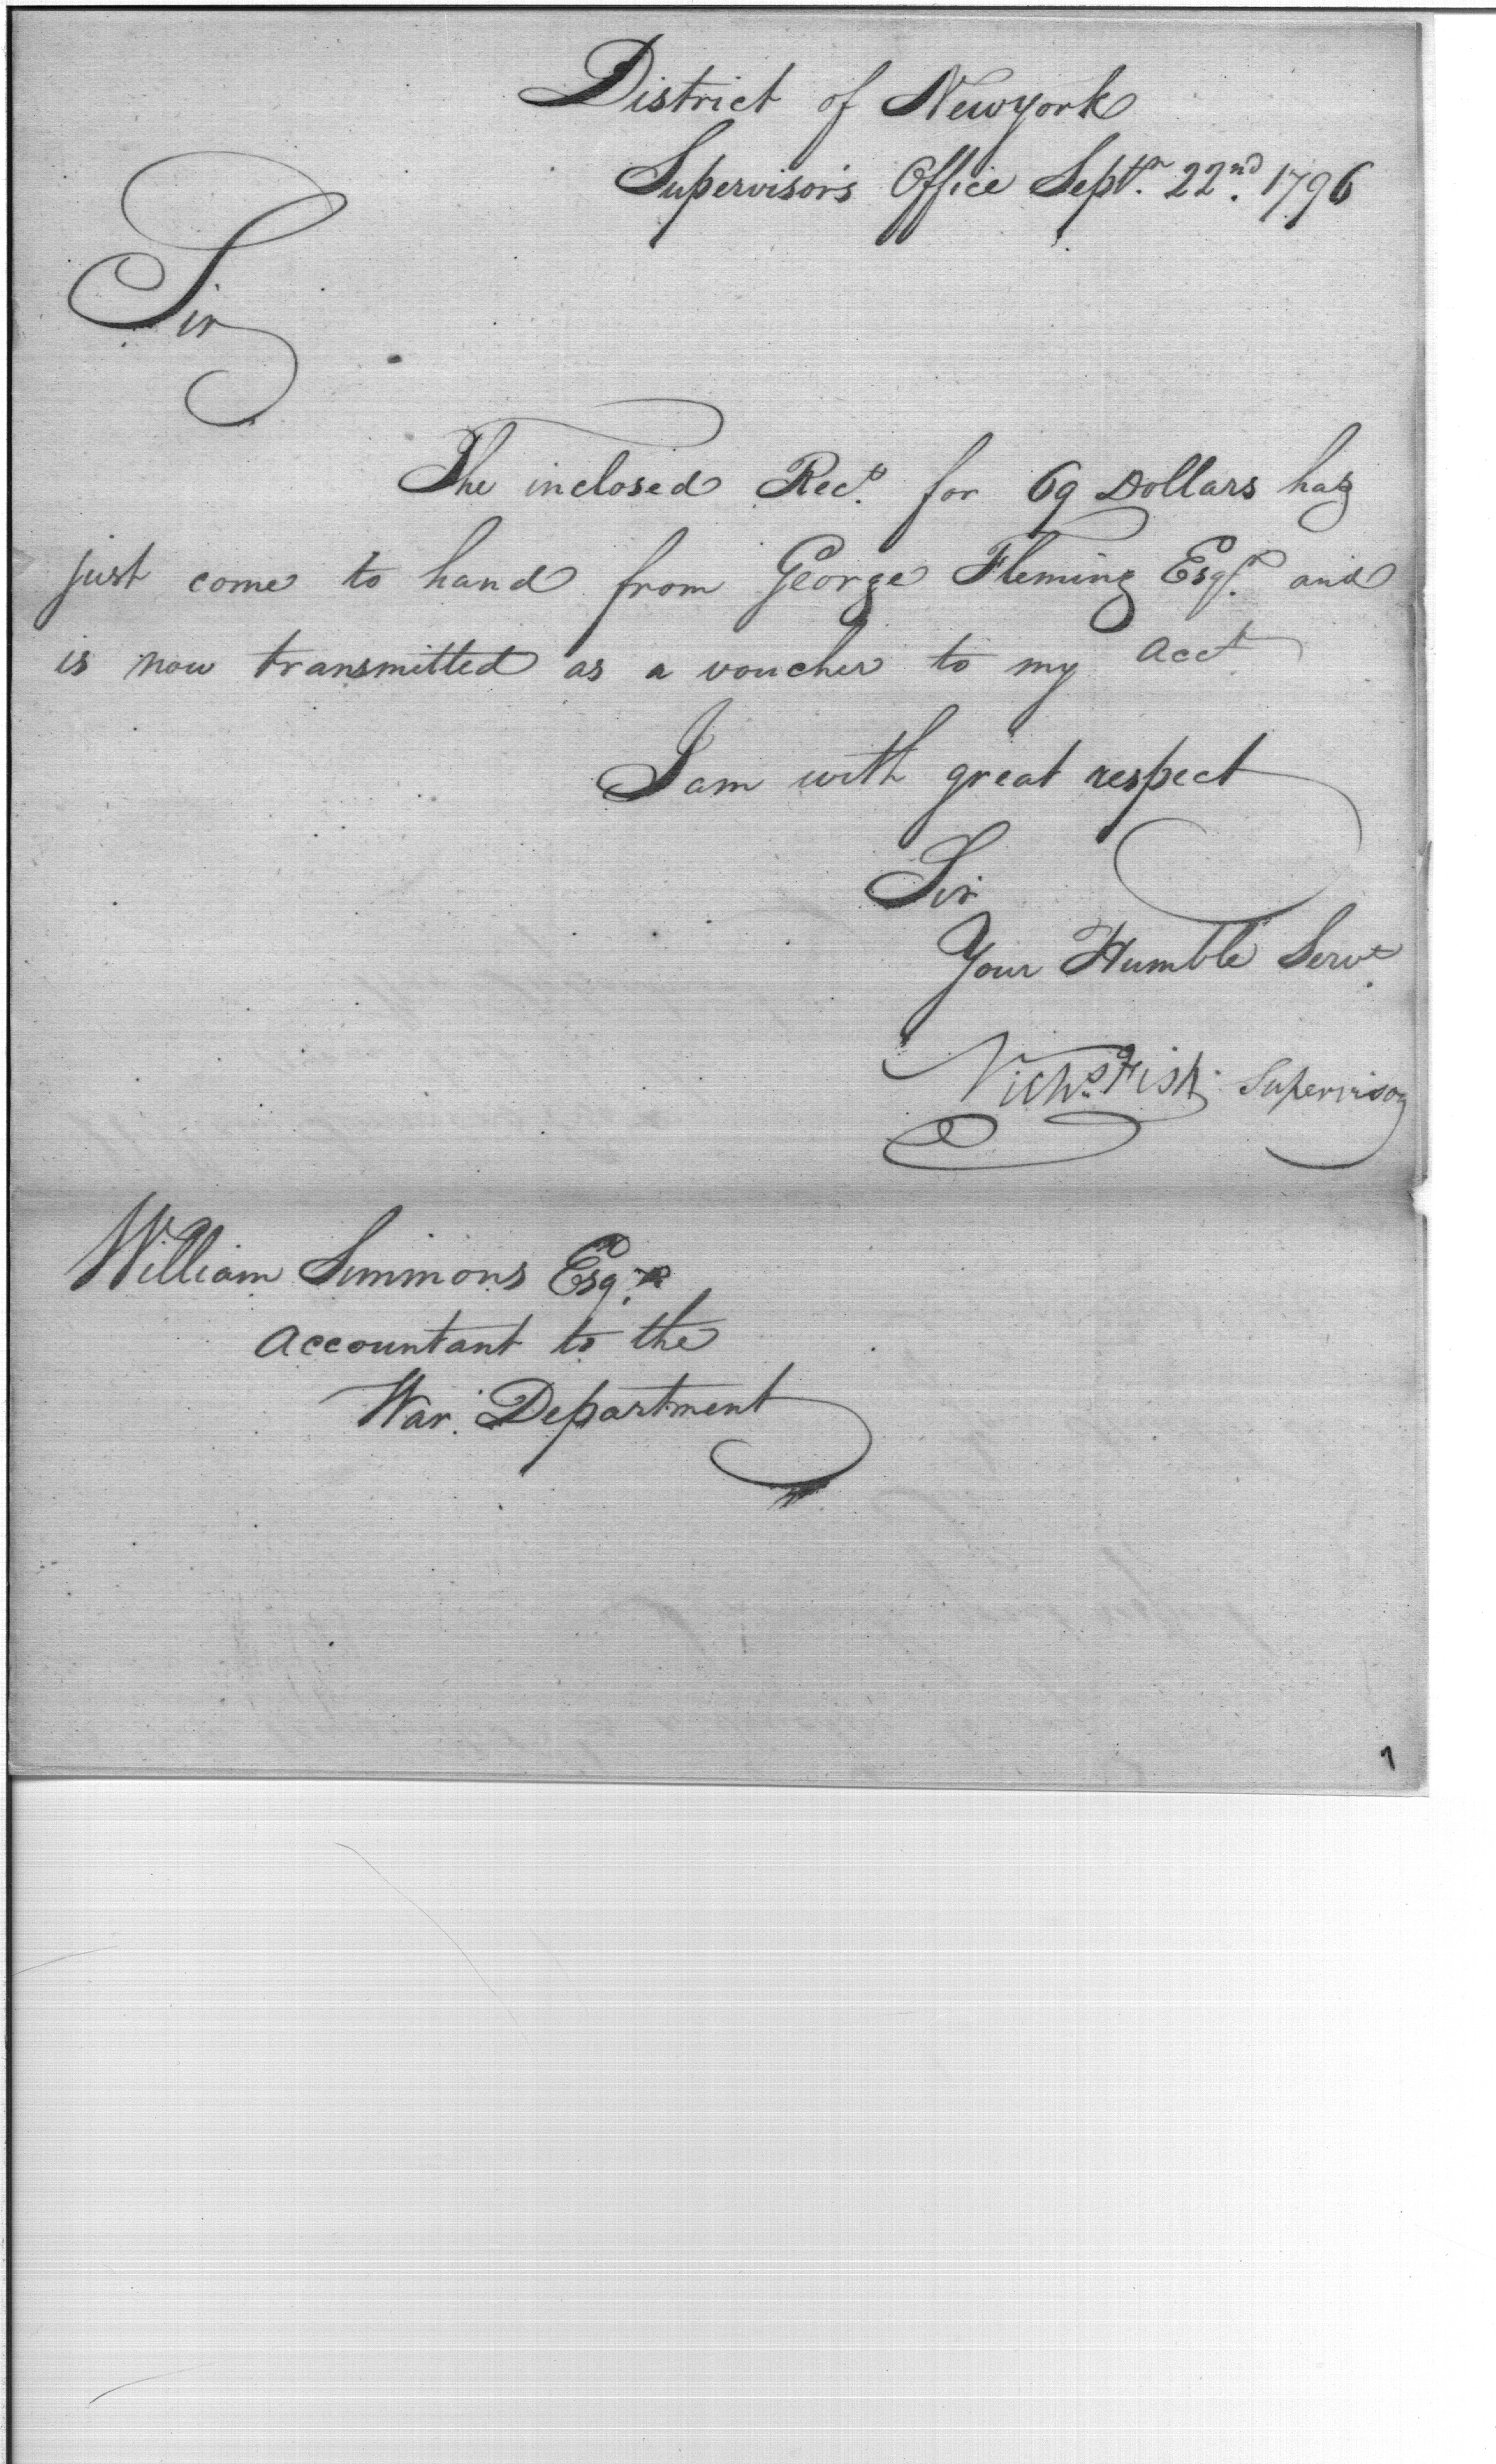 District of Newyork
Supervisor's Office Septr. 22nd. 1796
Sir
The inclosed Rect. for 69 Dollars has
just come to hand from George Fleming Esqr. and
is now transmitted as a voucher to my acct
I am with great respect
Sir
Your Humble Servt.
Nichs. Fish Supervisor
William Simmons Esqr.
Accountant to the
War Department
1